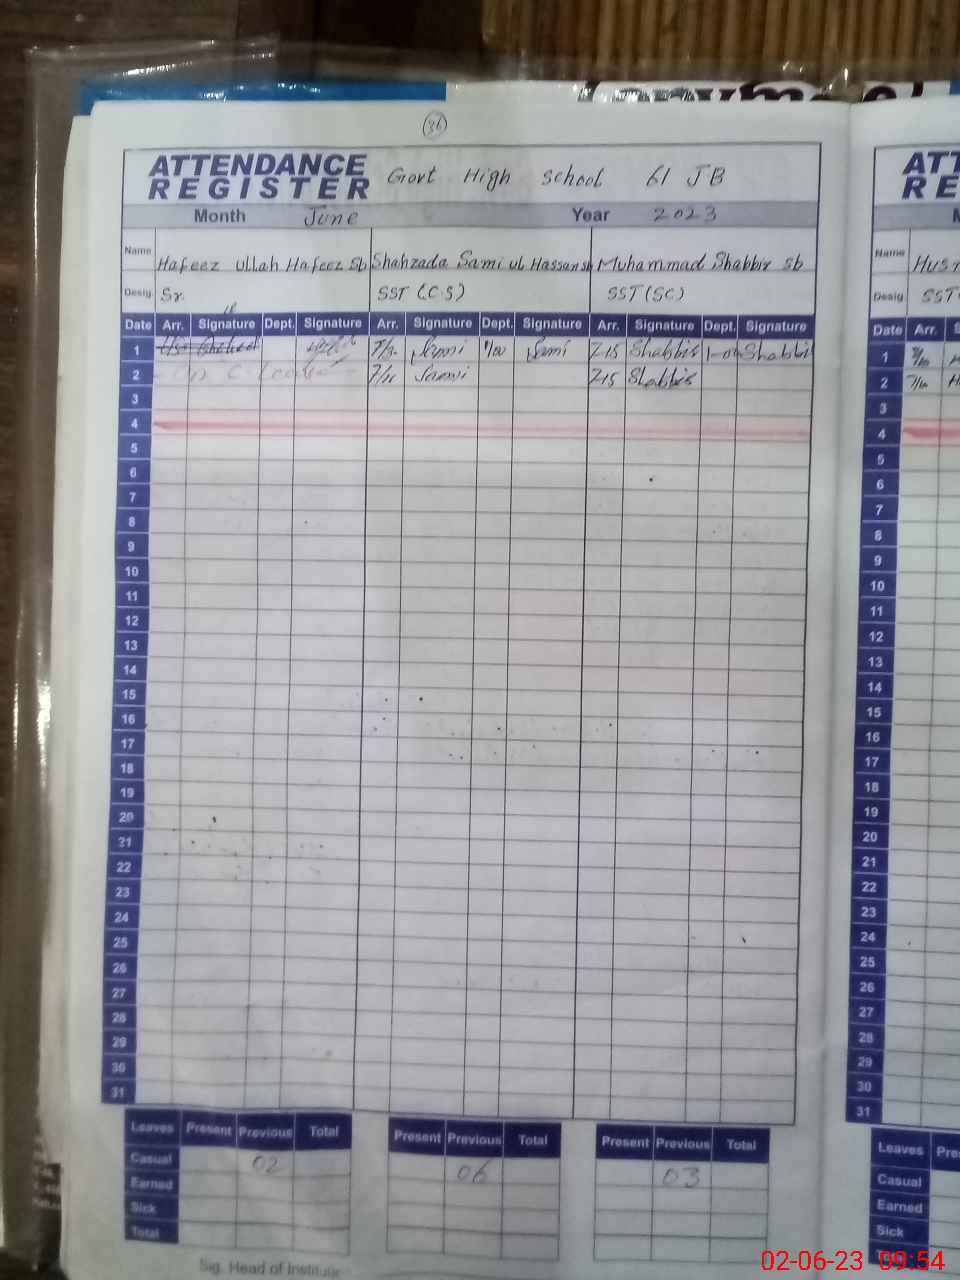 36
ATTENDANCE
REGISTER
Govt High School 61 JB
Month June Year 2023
Name Hafeez ullah Hafeez Sb Shahzada Sami ul Hassan sb Muhammad Shabbir sb
Desig Sr. SST (C.S) SST (SC)
Date Arr. Signature Dept. Signature Arr. Signature Dept. Signature Arr. Signature Dept. Signature
1 Sami Sami 7-15 Shabbir Shabbir
2 Sami 7-15 Shabbir
3
4
5
6
7
8
9
10
11
12
13
14
15
16
17
18
19
20
21
22
23
24
25
26
27
28
29
30
31
Leaves Present Previous Total Present Previous Total Present Previous Total
Casual 02 06 03
Earned
Sick
Total
Sig. Head of
ATT
RE
Name
Desig SST
Date Arr.
1
2
3
4
5
6
7
8
9
10
11
12
13
14
15
16
17
18
19
20
21
22
23
24
25
26
27
28
29
30
31
Leaves Pre
Casual
Earned
Sick
02-06-23 09:54